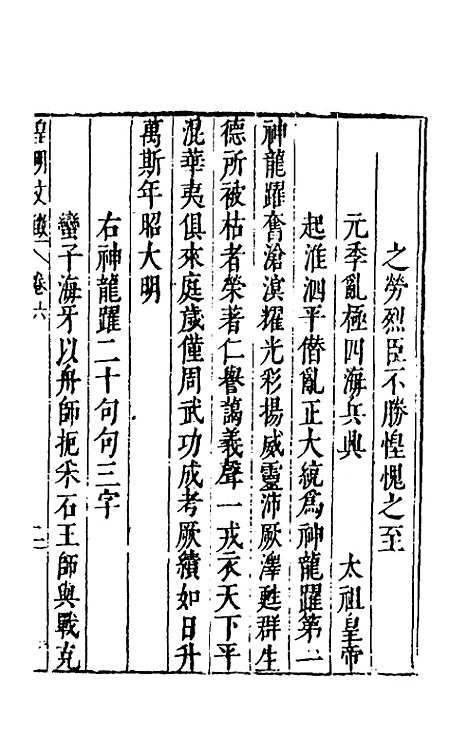 之勞烈臣不勝惶愧之至
元季亂極四海兵興　太祖皇帝
起淮泗平僭亂正大統為神龍躍第一
神龍躍奮滄溟耀光彩揚威靈沛厥澤甦群生
德所被枯者榮著仁譽藹義聲一戎衣天下平
混華夷俱來庭歲僅周武功成考厥績如日升
萬斯年昭大明
右神龍躍二十句句三字
蠻子海牙以舟師扼采石王師與戰克
皇明文徵 卷六